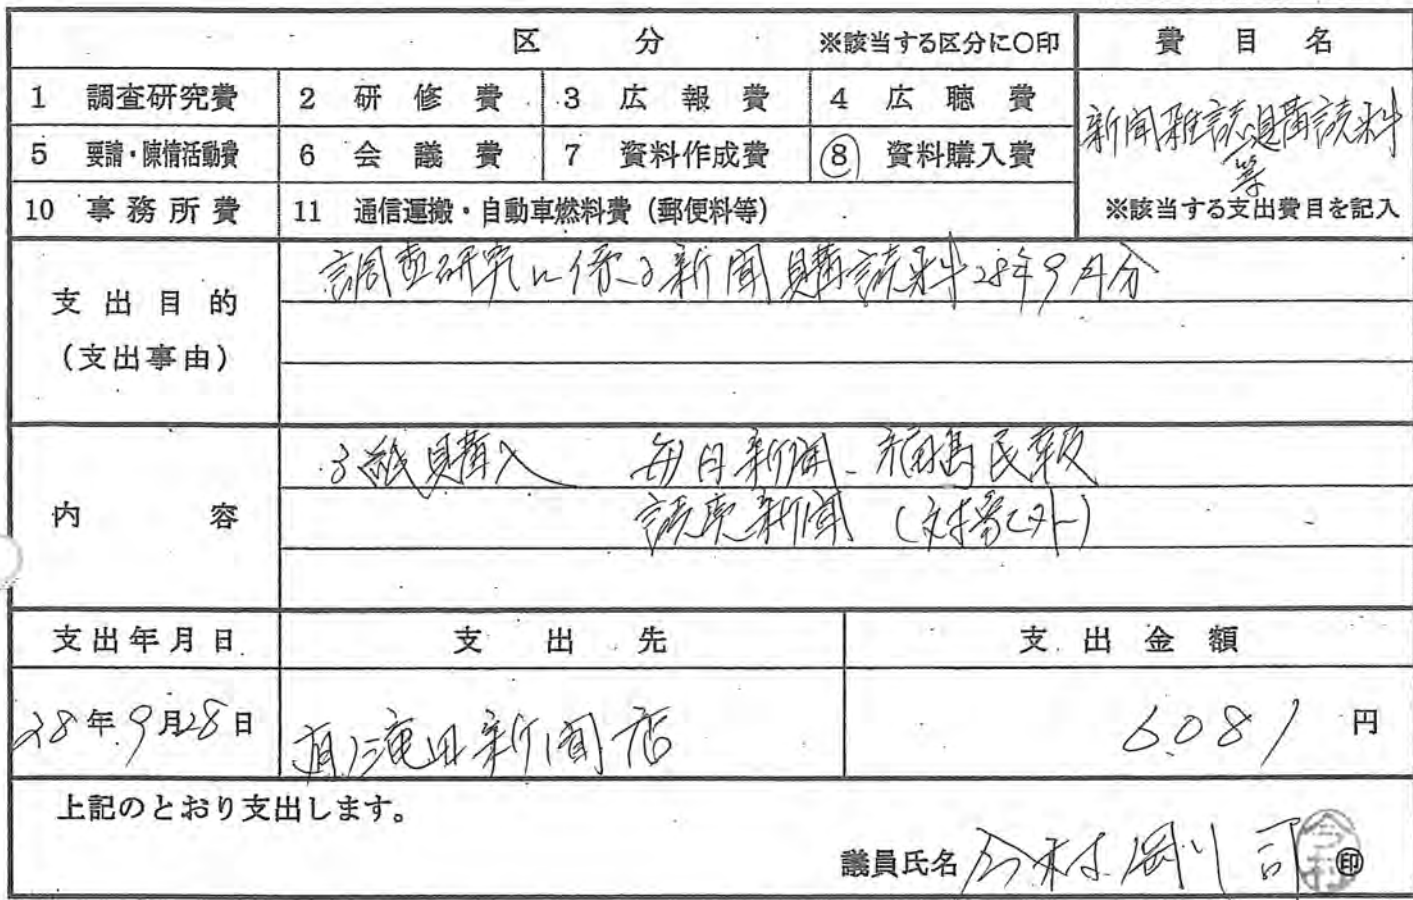 区 分 ※該当する区分に○印 費目名
1 調査研究費 2 研修費 3 広報費 4 広聴費
新聞雑誌購読料
5 要請・陳情活動費 6 会議費 7 資料作成費 ⑧ 資料購入費
等
10 事務所費 11 通信運搬・自動車燃料費(郵便料等) ※該当する支出費目を記入
支出目的 調査研究に係る新聞購読料28年9月分
(支出事由)
3紙購入 毎日新聞、福島民報
内容 読売新聞
支出年月日 支出先 支出金額
28年9月28日 滝田新聞店 6081円
上記のとおり支出します。
議員氏名 今村剛司 今村 ㊞